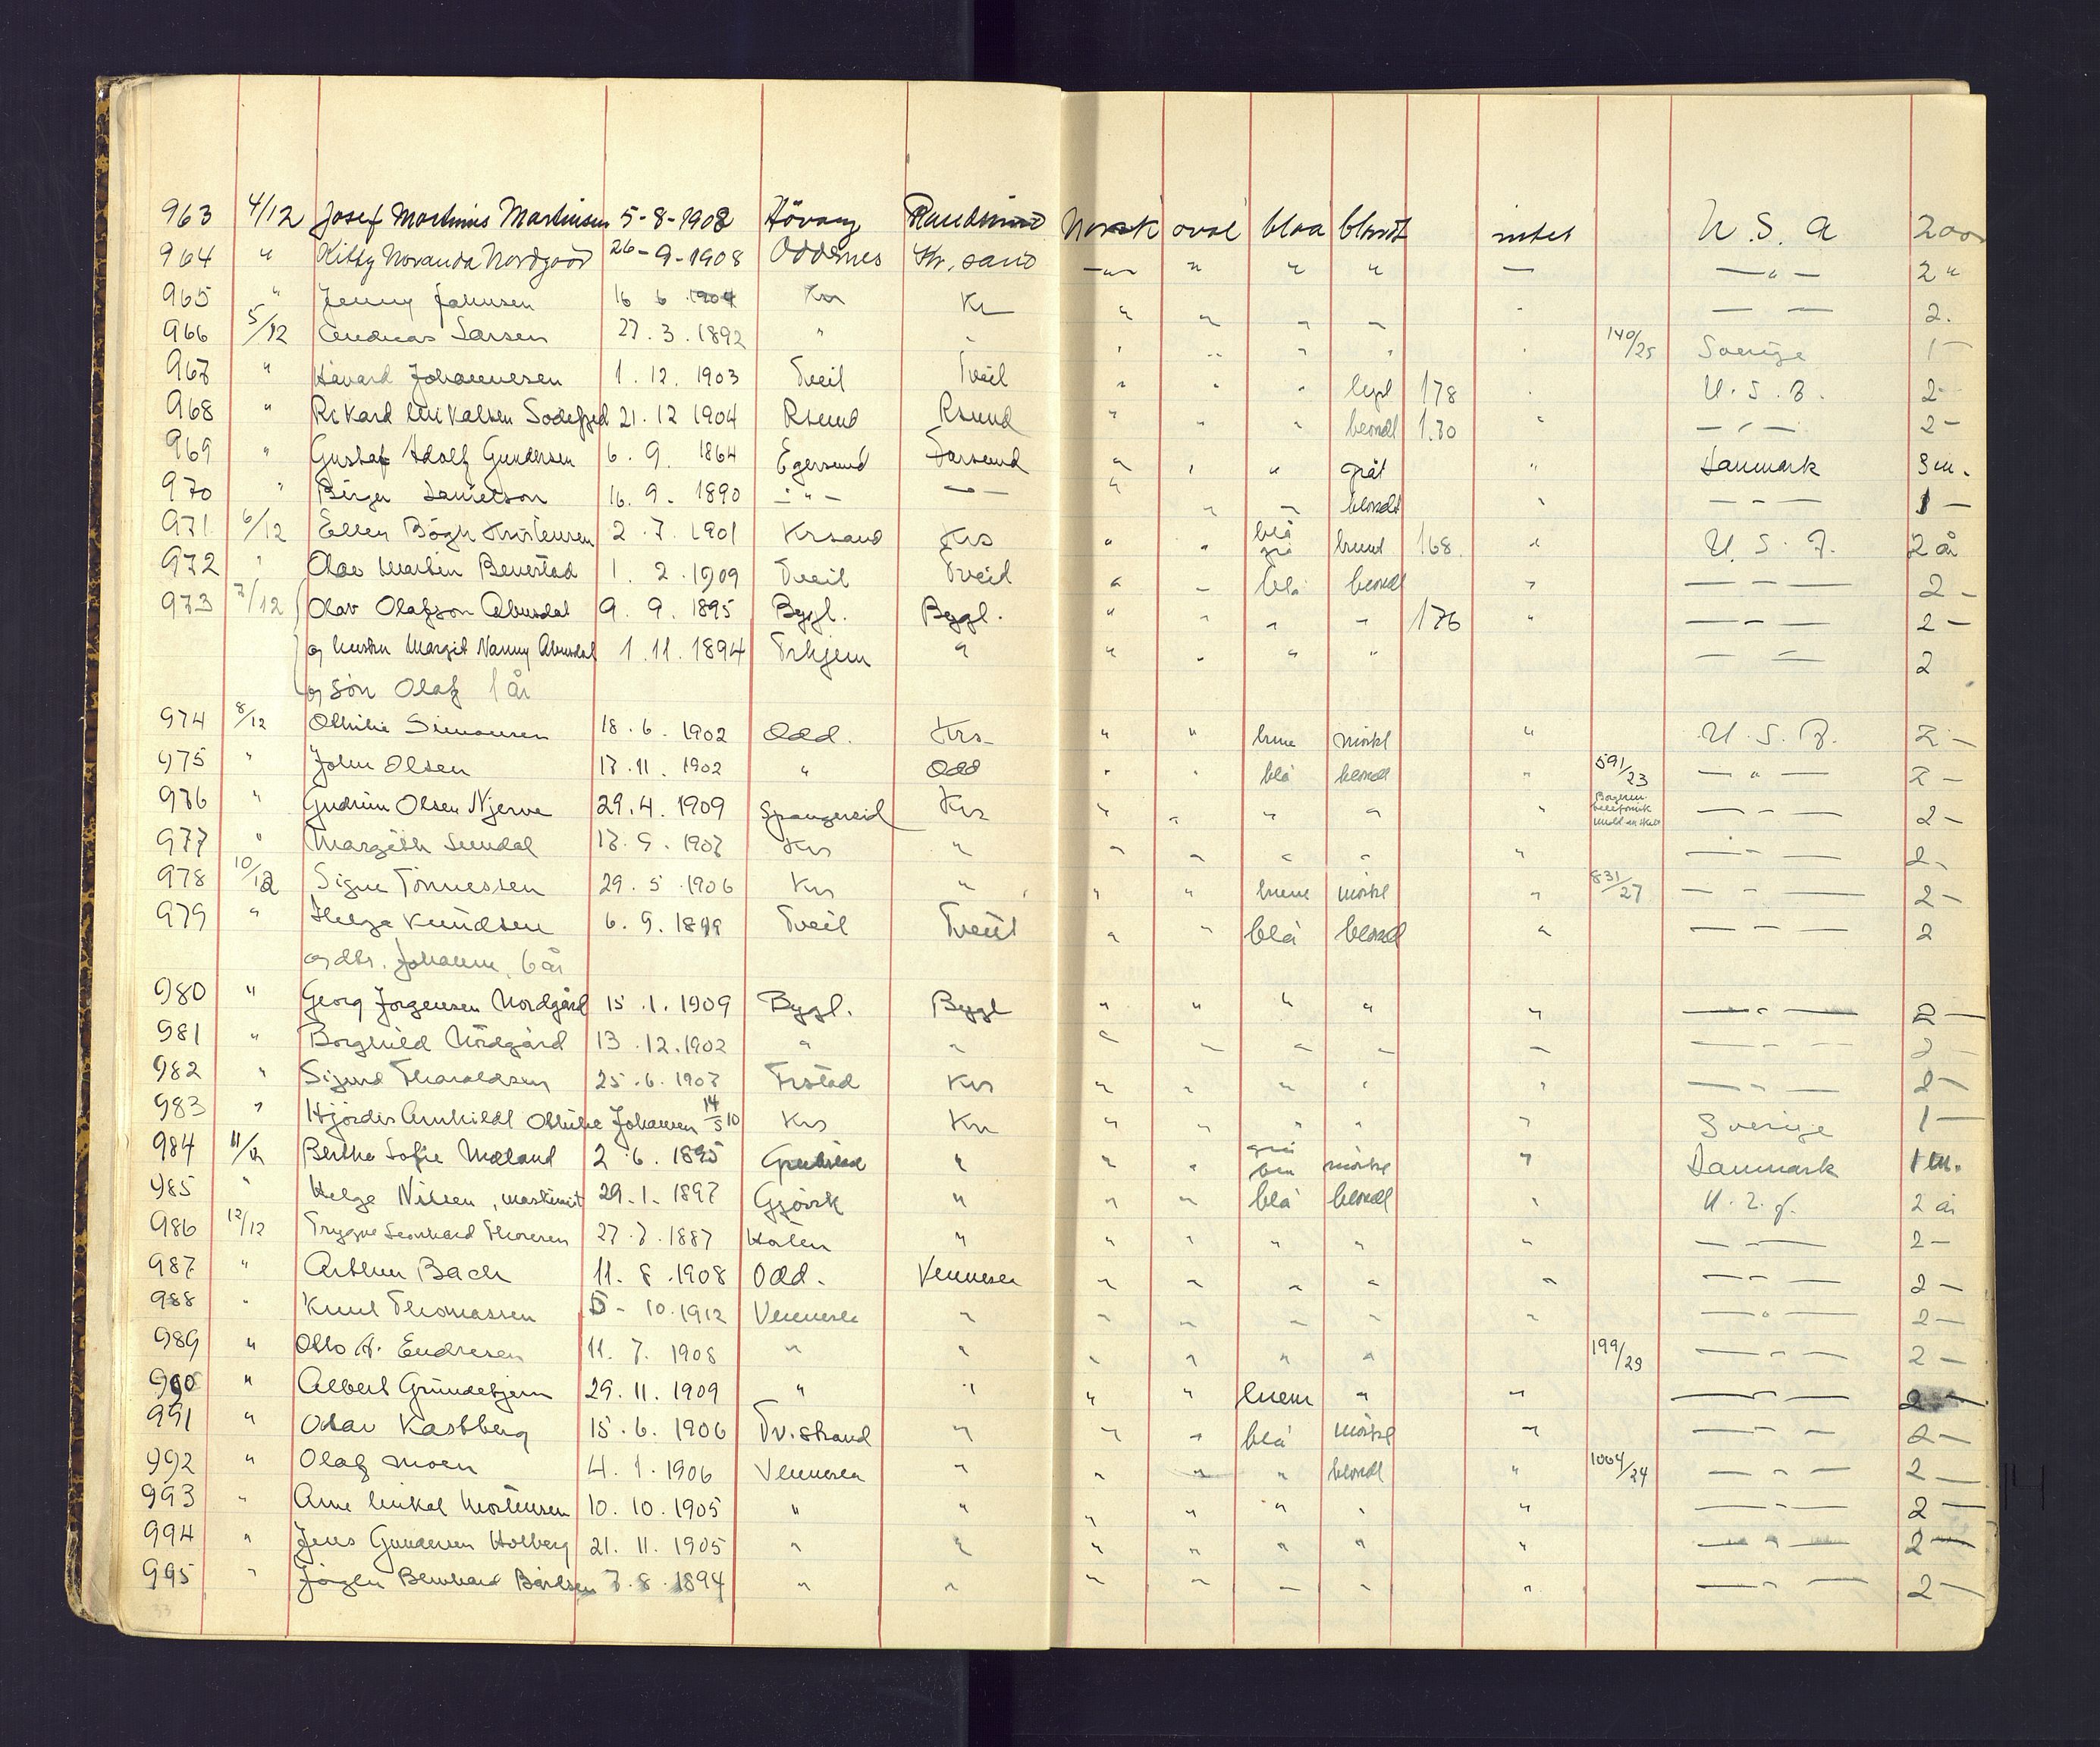 963 4/12 Josef Martinius Martinsen 5-8-1908 Hövaag Randesund Norsk oval blaa blondt intet U.S.A 2 aar
964 " Kitty Novanda Nordgaard 26-9-1908 Oddernes Kr.sand -"- " " " - -"- 2 "
965 " Jenny Johnsen 16 6 1904 Krs Kr " " " " " - - 2.
966 5/12 Andreas Larsen 27.3.1892 " " " " " " " 140/25 Sverige 1 -
967 " Håvard Johannesen 1.12.1903 Tveit Tveit " " " lyst 178 " U.S.A. 2 -
968 " Rikard Mikalsen Sodefjed 21.12 1904 Rsund Rsund " " " blondt 1.80 " -"- 2 -
969 " Gustaf Adolf Gundersen 6.9. 1864 Egersund Farsund " " " grått " Danmark 3 m.
970 " Birger Danielson 16.9. 1890 -"- -"- " " " blondt " - - - 1 -
971 6/12 Ellen Bögh Kristensen 2.7.1901 Krsand Krs " " blå grå brunt 168. " U.S.A. 2 år
972 " Olav Martin Benestad 1.2.1909 Tveit Tveit " " blå blondt " - - - 2 -
973 7/12 Olav Olafson Abusdal 9.9.1895 Bygl. Bygl. " " " " 176 " - - - 2 -
og hustru Margit Nanny Abusdal 1.11.1894 " " " " " - - 2
og sön Olaf 1 år
974 8/12 Othilie Simonsen 18.6.1902 Odd. Krs " " brune mörkt " U.S.A. 2 -
975 " John Olsen 17.11.1902 " Odd " " blå blondt " 591/23 -"- 2 -
976 " Gudrun Olsen Njerve 29.4.1909 Spangereid Krs " " " " " - - 2 -
977 " Margith Sundal 17.9.1907 Krs " " " " " " - - - 2 -
978 10/12 Signe Tönnessen 29.5.1906 Krs " " " brune mörkt " 831/27 - - - 2 -
979 " Helga Knudsen 6.9.1899 Tveit Tveit " " blå blondt " - - - 2
og dtr. Johanne, 6 år
980 " Georg Jorgensen Nordgård 15.1.1909 Bygl. Bygl " " " " " -"- 2 -
981 " Borghild Nordgård 13.12.1902 " " " " " " " - - - 2 -
982 " Sigurd Tharaldsen 25.6.1907 Frstad Krs " " " " " - - - 2 -
983 " Hjördis Arnhildt Othilie Johansen 14/5 10 Krs Krs " " " " " Sverige 1 -
984 11/12 Bertha Sofie Moland 2.6.1895 " " " grå mörkt " Danmark 1 m.
985 " Helge Nilsen, maskinist 29.1.1897 Gjövik " " " blå blondt " U.S.A. 2 år
986 12/12 Trygve Leonhard Thoresen 27.7.1887 Holen " " " " " " - - 2 -
987 " Arthur Bach 11.8.1908 Odd. Vennesla " " " " " - - - 2 -
988 " Knut Thomassen 5-10.1912 Vennesla " " " " " " -"- 2 -
989 " Otto A. Endresen 11.7.1908 " " " " " " 199/29 - - - 2 -
990 " Albert Grundetjern 29.11.1909 " " " " brune " " - - - 2 -
991 " Oskar Kastberg 15.6.1906 Tv.strand " " " blå mörkt " - - - 2 -
992 " Olaf Moen 4.1.1906 Vennesla " " " " blondt " 1064/24 - - - 2 -
993 " Arne Mikal Mortensen 10.10.1905 " " " " " " " - - - 2 -
994 " Jens Gundersen Holberg 21.11.1905 " " " " " " " -"- 2 -
995 " Jörgen Bernhard Bårdsen 7.8.1894 " " " " " " " -"- 2 -
33